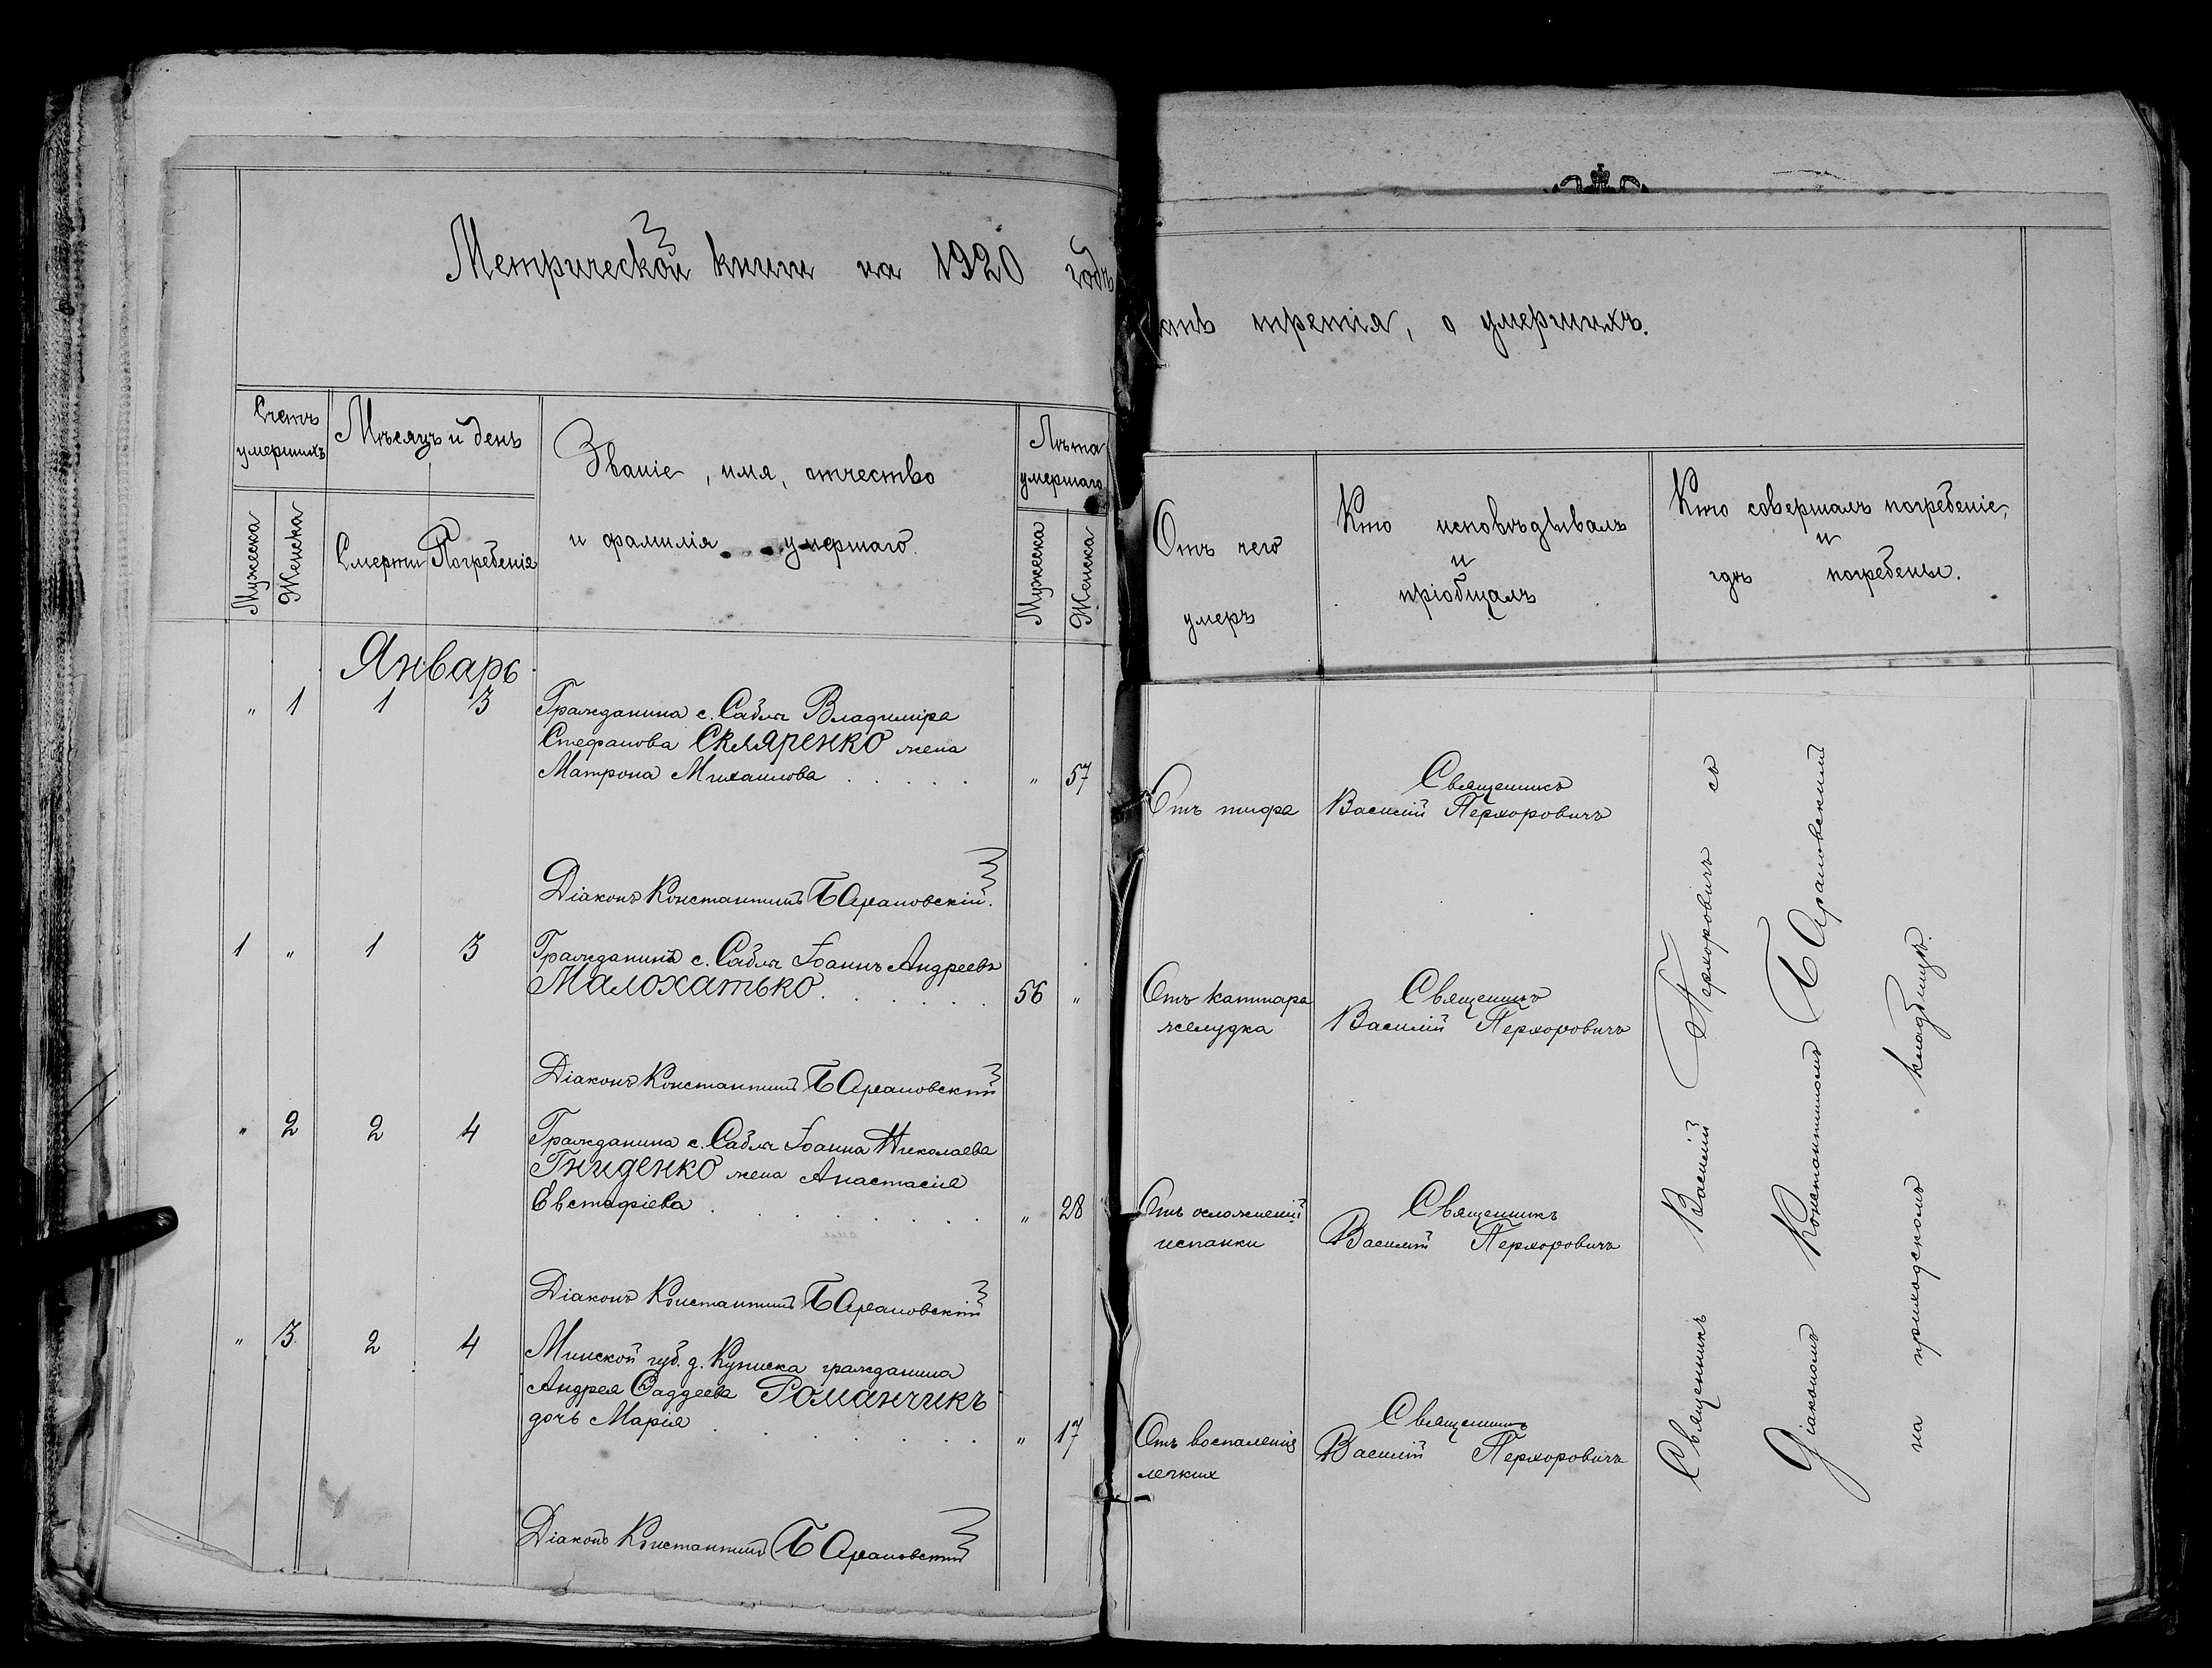 Метрической книги на 1920 годъ
третія, о умершихъ.
Счетъ
умершихъ
Мужеска
Женска
Мѣсяцъ и день
Смерти
Погребенія
Званіе, имя, отчество
и фамилія умершаго.
Лѣта
умершаго
Мужеска
Женска
Отъ чего
умеръ
Кто исповѣдывалъ
и
пріобщалъ
Кто совершалъ погребеніе,
и
гдѣ погребены.
Январь
" 1 1 3 Гражданина с. Сабли Владиміра
Стефанова Скляренко жена
Матрона Михаилова . . . . . " 57
Отъ тифа
Священникъ
Василій Перхоровичъ
Діаконъ Константинъ Барановскій.
1 " 1 3 Гражданинъ с. Сабли Іоаннъ Андреевъ
Малохатько . . . . . . 56 "
Отъ каттара
желудка
Священникъ
Василій Перхоровичъ
Діаконъ Константинъ Барановскій
" 2 2 4 Гражданина с. Сабли Іоанна Николаева
Гниденко жена Анастасія
Евстафіева . . . . . . . . " 28
Отъ осложненій
испанки
Священникъ
Василій Перхоровичъ
Діаконъ Константинъ Барановскій
" 3 2 4 Минской губ. д. гражданина
Андрея Фаддеева Романчикъ
дочь Марія . . . . . . . . " 17
Отъ воспаленія
легкихъ
Священникъ
Василій Перхоровичъ
Діаконъ Константинъ Барановскій
Священникъ Василій Перхоровичъ съ
Діакономъ Константиномъ Барановскимъ
на приходскомъ кладбищѣ.